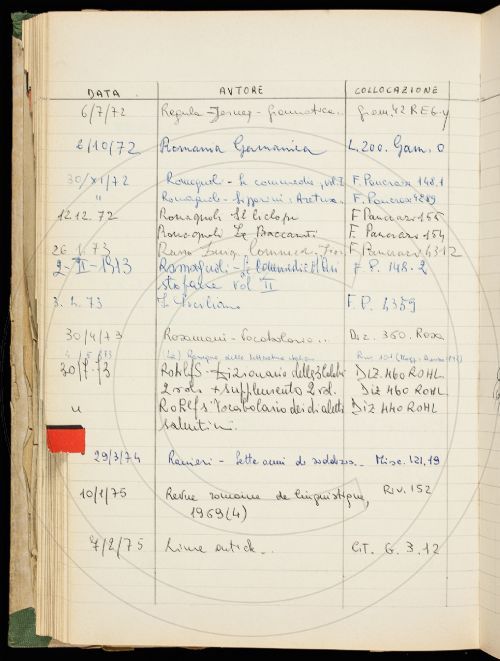 DATA AUTORE COLLOCAZIONE
6/7/72 Regula - Jernej - Grammatica.. Gram. 42 REG-y
2/10/72 Romania Germanica L.200. Gam. 0
30/XI/72 Romagnoli - Le commedie, vol. F. Pancrazi 148.1
" Romagnoli - F. Pancrazi
12.12.72 Romagnoli Il Ciclope F Pancrazi 155
Romagnoli Le Baccanti F. Pancrazi 154
26 1/73 F. Pancrazi 4312
Romagnoli - Le Commedie di Ari
stofane vol II F.P. 148.2
3. 2. 73 F.P. 4359
30/4/73 Rosamani - Vocabolario... Diz. 360. Rosa
Rassegna della letteratura italiana
30/7/73 Rohlfs - Dizionario delle 3 Calabrie DIZ. 460 ROHL
2 vol. + supplemento 2 vol. DIZ 460 ROHL
" Rohlfs Vocabolario dei dialetti DIZ 440 ROHL
salentini.
29/3/74 Ranieri - Sette anni di sodalizio.. Misc. 121,19
10/1/75 Revue romane de linguistique, Riv. 152
1969 (4)
7/2/75 Rime antiche... CIT. G. 3.12